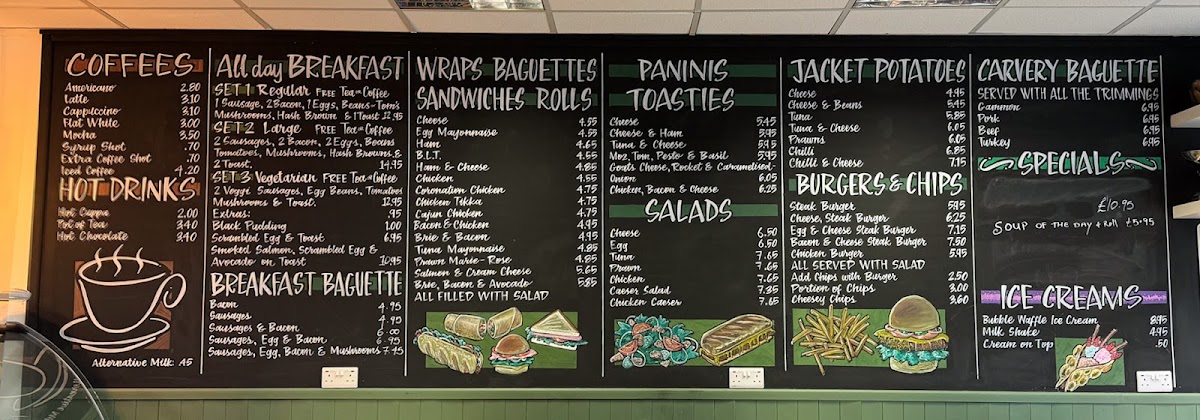 COFFEES
Americano 2.80
Latte 3.10
Cappuccino 3.10
Flat White 3.00
Mocha 3.50
Syrup Shot .70
Extra Coffee Shot .70
Iced Coffee 4.20
HOT DRINKS
Hot Cuppa 2.00
Pot of Tea 3.40
Hot Chocolate 3.40
Alternative Milk .45
All day BREAKFAST
SET 1 Regular FREE Tea or Coffee
1 Sausage, 2 Bacon, 1 Eggs, Beans-Tom's
Mushrooms, Hash Brown & 1 Toast 12.95
SET 2 Large FREE Tea or Coffee
2 Sausages, 2 Bacon, 2 Eggs, Beans
Tomatoes, Mushrooms, Hash Browns &
2 Toast. 14.95
SET 3 Vegetarian FREE Tea or Coffee
2 Vegge Sausages, Egg Beans, Tomatoes
Mushrooms & Toast. 12.95
Extras: .95
Black Pudding 1.00
Scrambled Egg & Toast 6.95
Smoked Salmon, Scrambled Egg &
Avocado on Toast 10.95
BREAKFAST BAGUETTE
Bacon 4.95
Sausages 4.95
Sausages & Bacon 6.00
Sausages, Egg & Bacon 6.95
Sausages, Egg, Bacon & Mushrooms 7.45
WRAPS BAGUETTES
SANDWICHES ROLLS
Cheese 4.55
Egg Mayonnaise 4.55
Ham 4.65
B.L.T. 4.55
Ham & Cheese 4.85
Chicken 4.55
Coronation Chicken 4.75
Chicken Tikka 4.75
Cajun Chicken 4.75
Bacon & Chicken 4.95
Brie & Bacon 4.95
Tuna Mayonnaise 4.85
Prawn Marie-Rose 4.85
Salmon & Cream Cheese 5.65
Brie, Bacon & Avocado 5.85
ALL FILLED WITH SALAD
PANINIS
TOASTIES
Cheese 5.45
Cheese & Ham 5.95
Tuna & Cheese 5.95
Moz, Tom, Pesto & Basil 5.95
Goats Cheese, Rocket & Caramelised
Onion 6.05
Chicken, Bacon & Cheese 6.25
SALADS
Cheese 6.50
Egg 6.50
Tuna 7.65
Prawn 7.65
Chicken 7.65
Caeser Salad 7.35
Chicken Caeser 7.65
JACKET POTATOES
Cheese 4.95
Cheese & Beans 5.45
Tuna 5.85
Tuna & Cheese 6.05
Prawns 6.05
Chilli 6.85
Chilli & Cheese 7.15
BURGERS & CHIPS
Steak Burger 5.95
Cheese, Steak Burger 6.25
Egg & Cheese Steak Burger 7.15
Bacon & Cheese Steak Burger 7.50
Chicken Burger 5.95
ALL SERVED WITH SALAD
Add Chips with Burger 2.50
Portion of Chips 3.00
Cheesy Chips 3.60
CARVERY BAGUETTE
SERVED WITH ALL THE TRIMMINGS
Gammon 6.95
Pork 6.95
Beef 6.95
Turkey 6.95
SPECIALS
£10.95
SOUP OF THE DAY & Roll £5.95
ICE CREAMS
Bubble Waffle Ice Cream 8.95
Milk Shake 4.95
Cream on Top .50